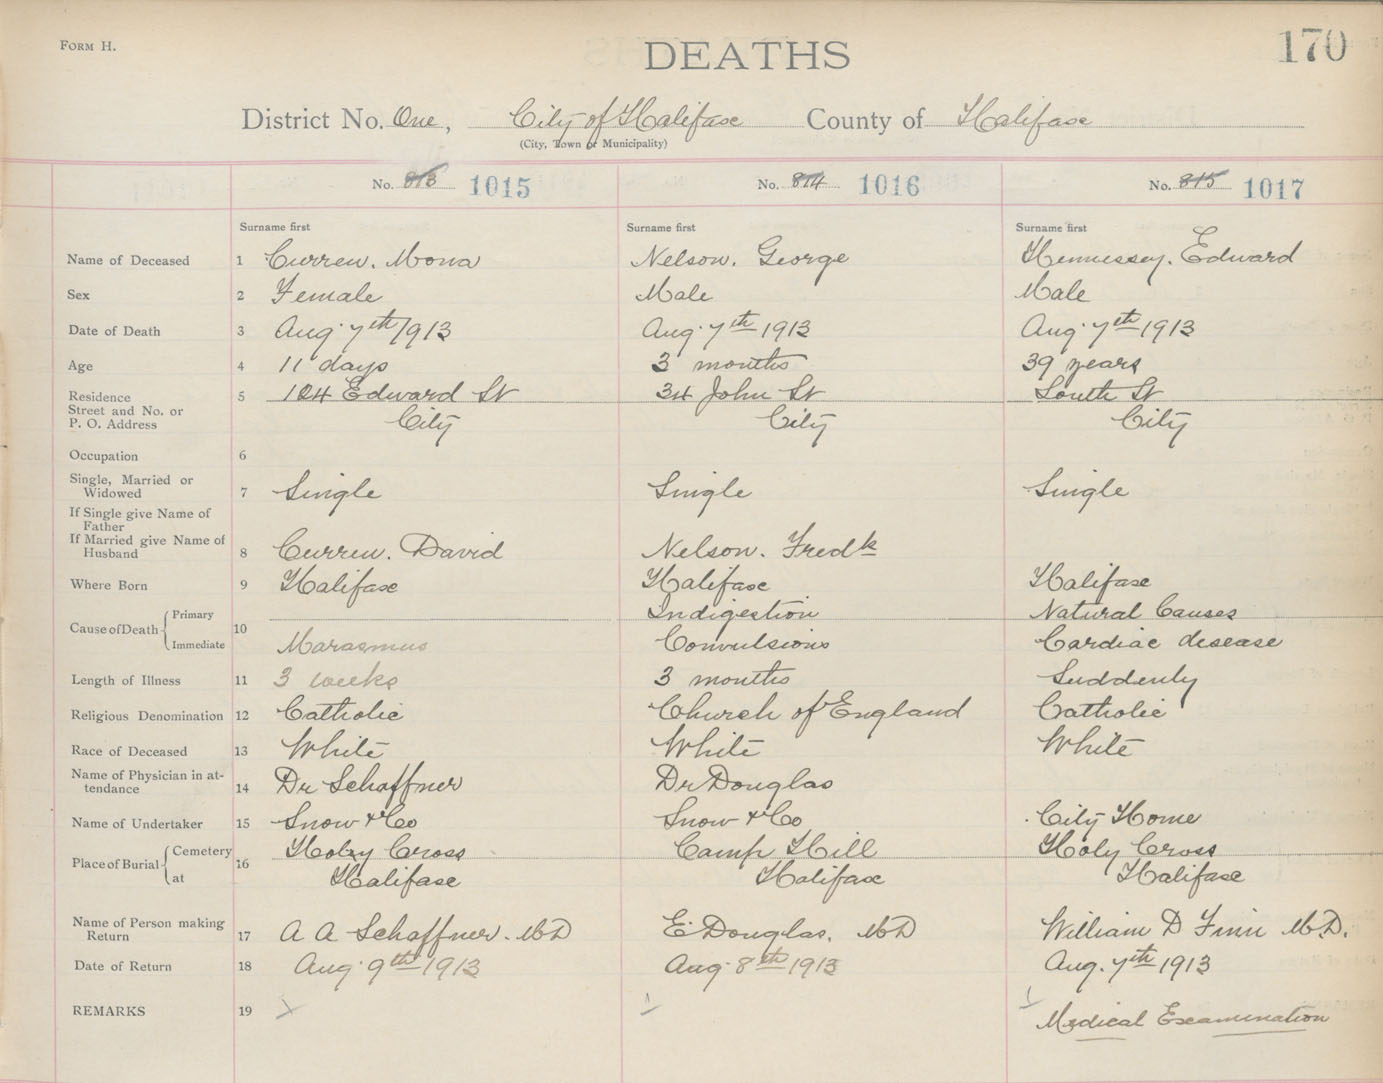 FORM H.
DEATHS
170
District No. One, City of Halifax County of Halifax
(City, Town or Municipality)
No. 813 1015 No. 814 1016 No. 815 1017
Surname first Surname first Surname first
Name of Deceased 1 Curren. Mona Nelson. George Hennessey. Edward
Sex 2 Female Male Male
Date of Death 3 Aug. 7th/913 Aug. 7th 1913 Aug. 7th 1913
Age 4 11 days 3 months 39 years
Residence 5 104 Edward St 34 John St South St
Street and No. or
P. O. Address City City City
Occupation 6
Single, Married or
Widowed 7 Single Single Single
If Single give Name of
Father
If Married give Name of
Husband 8 Curren. David Nelson. Fredk
Where Born 9 Halifax Halifax Halifax
Cause of Death Primary 10 Indigestion Natural Causes
Immediate Marasmus Convulsions Cardiac disease
Length of Illness 11 3 weeks 3 months Suddenly
Religious Denomination 12 Catholic Church of England Catholic
Race of Deceased 13 White White White
Name of Physician in at-
tendance 14 Dr Schaffner Dr Douglas
Name of Undertaker 15 Snow & Co Snow & Co City Home
Place of Burial Cemetery 16 Holy Cross Camp Hill Holy Cross
at Halifax Halifax Halifax
Name of Person making
Return 17 A A Schaffner. MD E Douglas. MD William D Finn M.D.
Date of Return 18 Aug. 9th 1913 Aug. 8th 1913 Aug. 7th 1913
REMARKS 19 Medical Examination